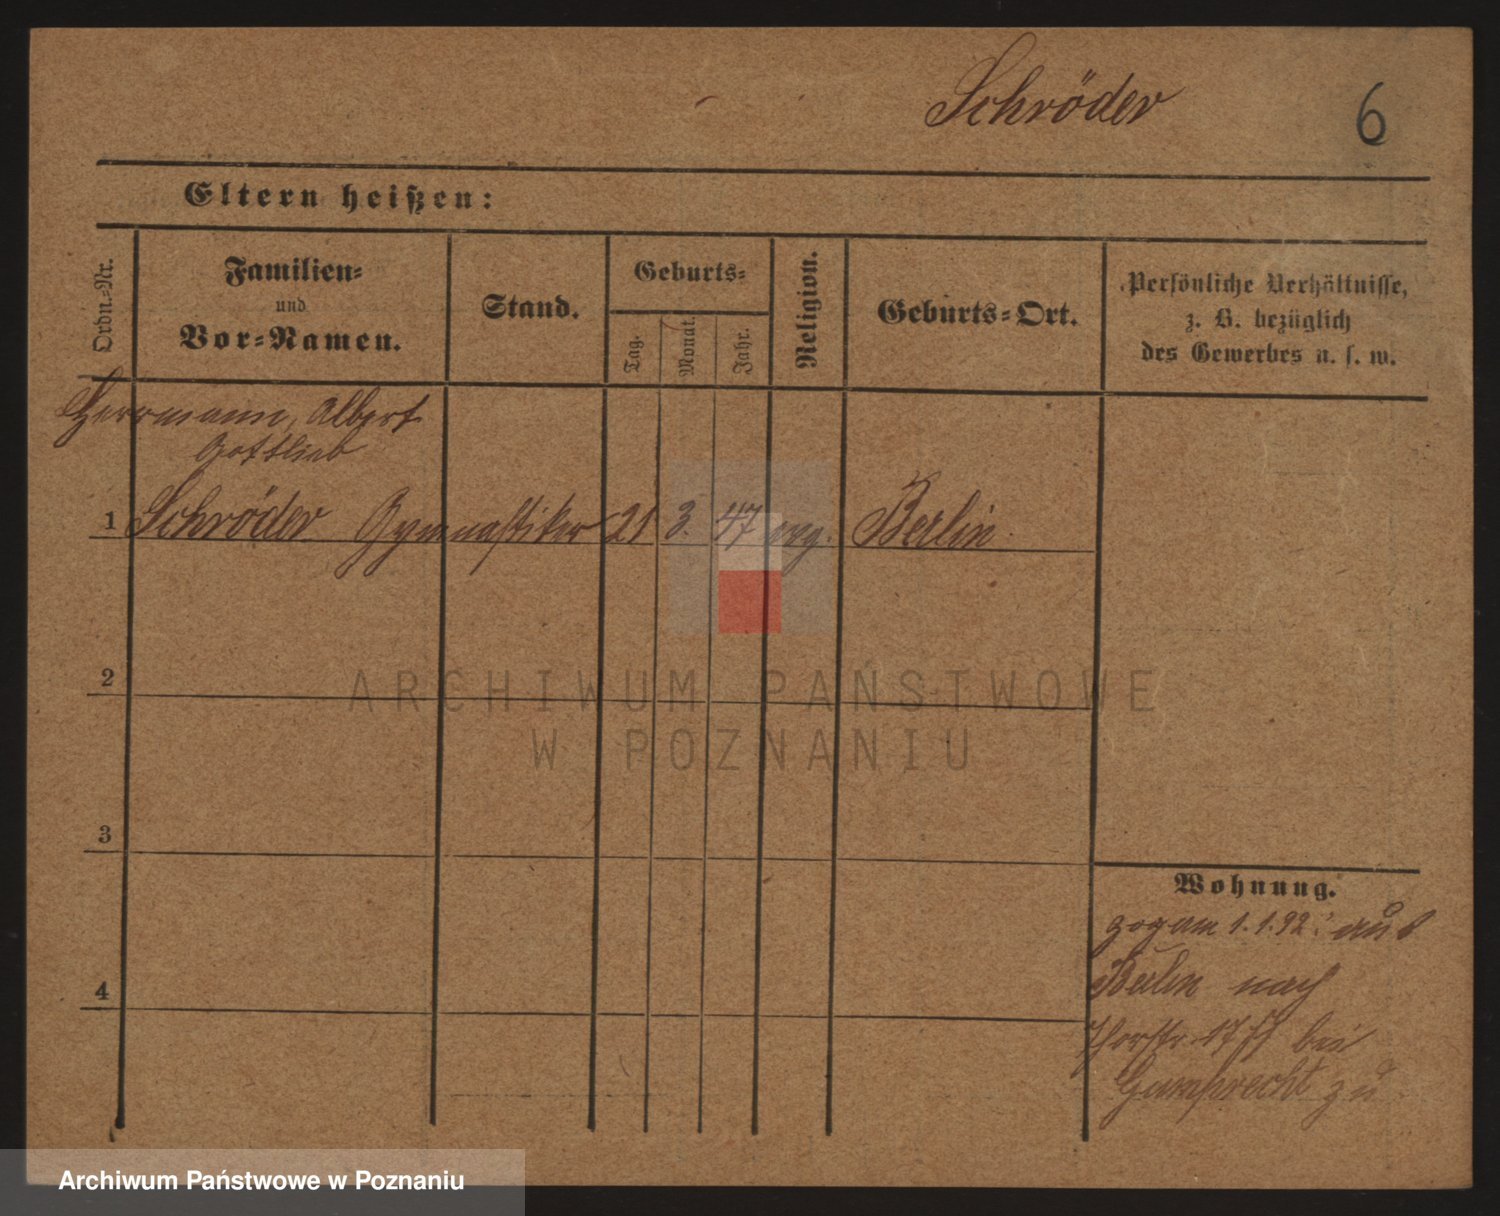 Schröder
6
Eltern heißen:
Ordn.-Nr.
Familien-
und
Vor-Namen.
Stand.
Geburts-
Tag.
Monat.
Jahr.
Religion.
Geburts-Ort.
Persönliche Verhältnisse,
z. B. bezüglich
des Gewerbes u. s. w.
Herrmann, Albert
Gottlieb
1 Schröder Gymnastiker 21 3. 47 evg. Berlin.
2
ARCHIWUM PAŃSTWOWE
W POZNANIU
3
Wohnung.
zog am 1.1.92. aus
4
Berlin nach
bei
Gumprecht zu
Archiwum Państwowe w Poznaniu